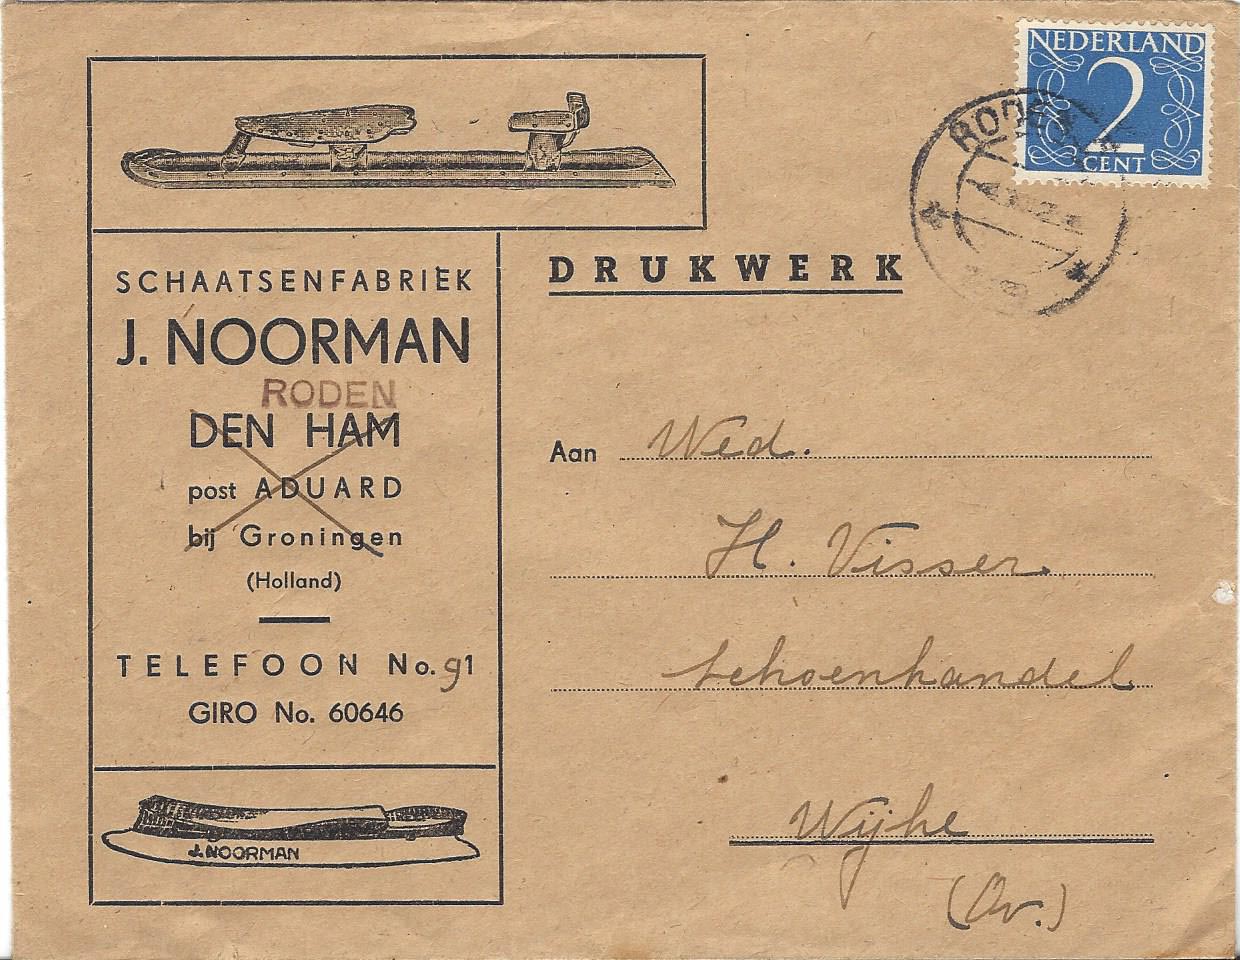 NEDERLAND
2
CENT
RODEN
SCHAATSENFABRIEK
J. NOORMAN
RODEN
DEN HAM
post ADUARD
bij Groningen
(Holland)
TELEFOON No. 91
GIRO No. 60646
J. NOORMAN
DRUKWERK
Aan Wed.
H. Visser
schoenhandel
Wijhe
(Ov.)